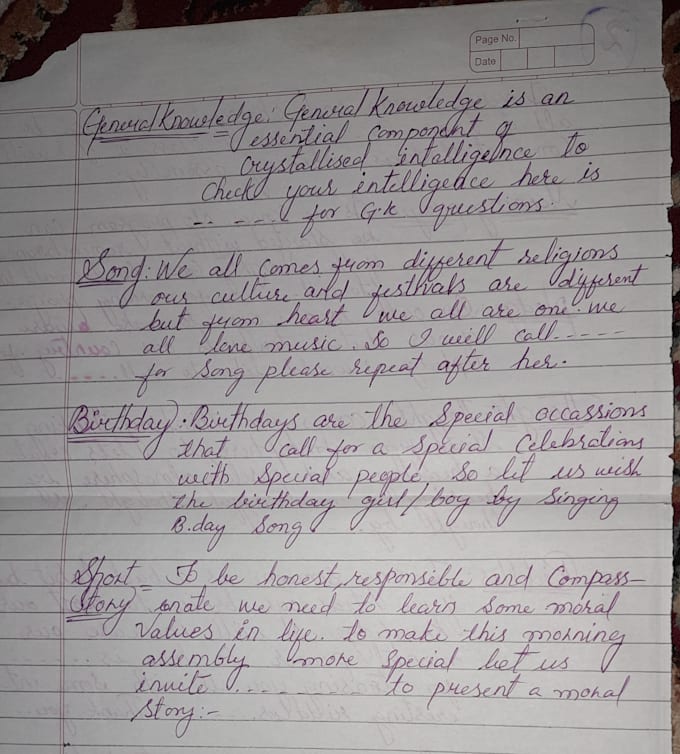 Page No.
Date
General Knowledge: General Knowledge is an
essential component of
crystallised intelligence to
Check your intelligence here is
..----- for G.K questions.
Song: We all comes from different religions
our culture and festivals are different
but from heart we all are one. we
all love music. So I will call.-----
for song please repeat after her.
Birthday: Birthdays are the Special occassions
that call for a special Celebrations
with Special people. So let us wish
the birthday girl/boy by Singing
B.day Song
Short = To be honest, responsible and Compass-
Story ionate we need to learn some moral
Values in life. to make this morning
assembly more special let us
invite..----- to present a moral
Story:-